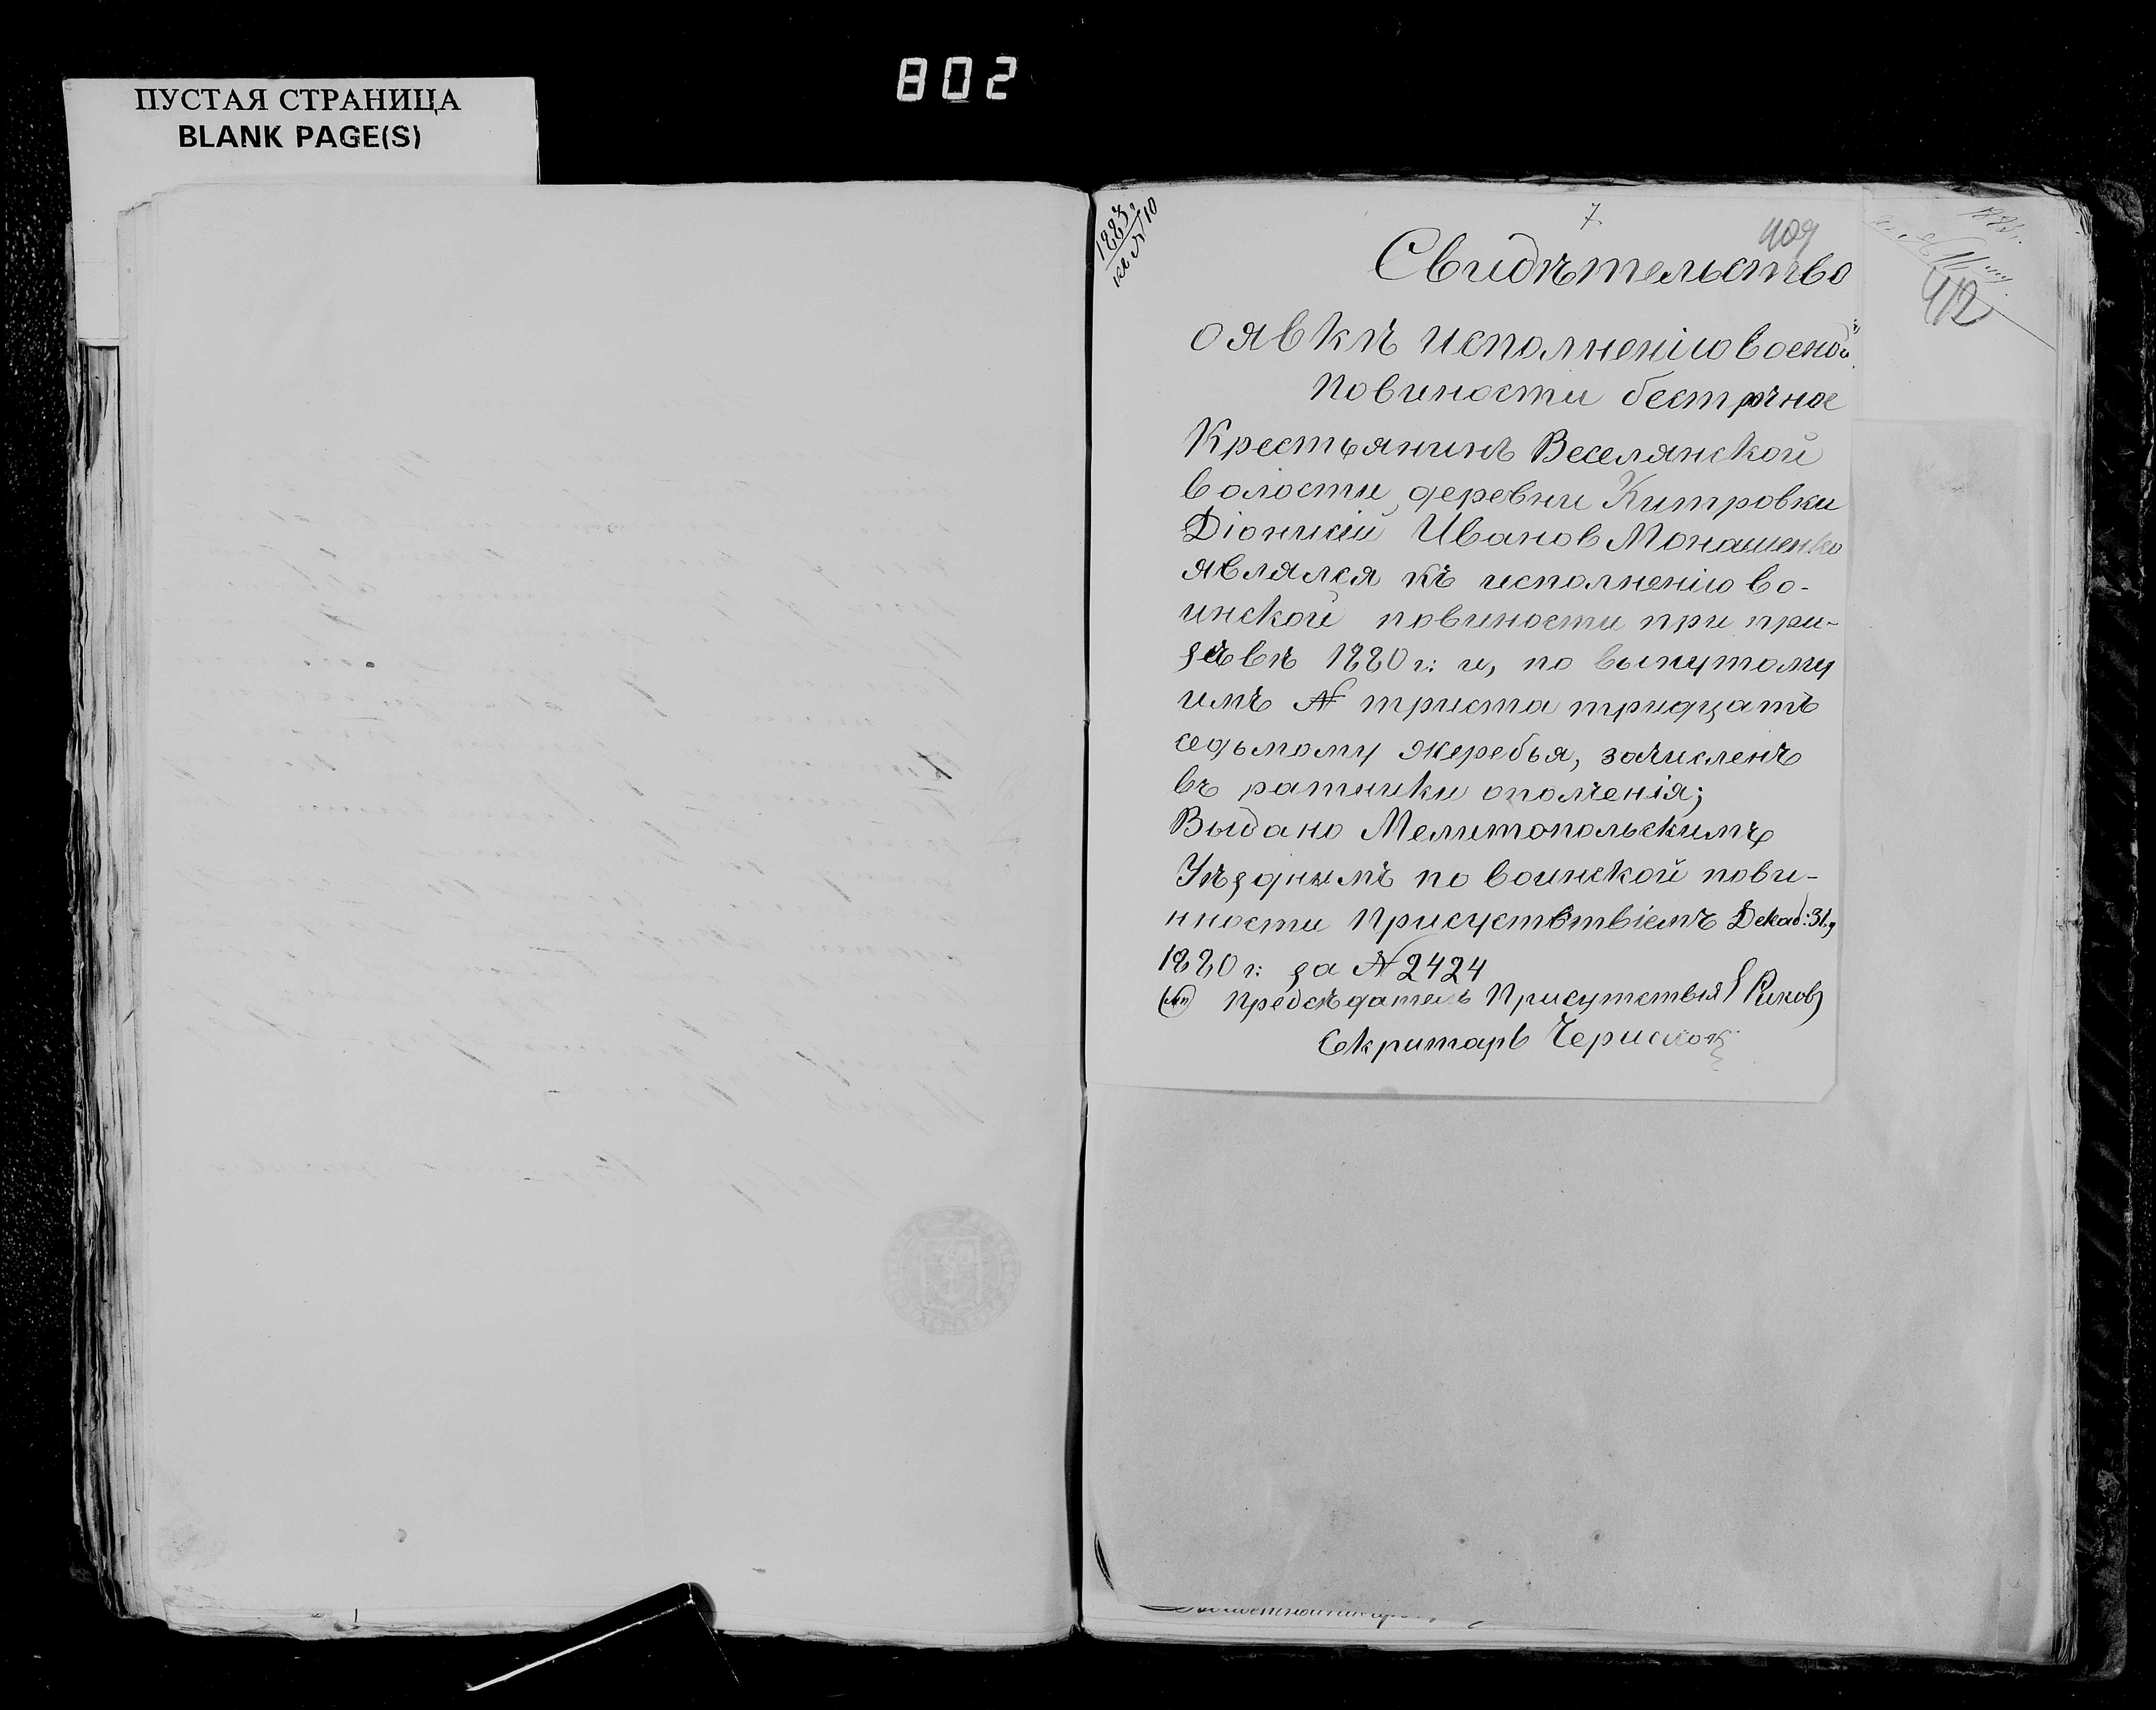 802
ПУСТАЯ СТРАНИЦА
BLANK PAGE(S)
1883 г.
къ № 10
7
409
412
Свидѣтельство
о явкѣ исполненію военой
повиности бестрочное
Крестьянинъ Веселянской
волости деревни Китровки
Діонисій Иванов Монашенко
являлся къ исполненію во-
инской повиности при при-
зывѣ 1880 г: и, по вынутому
имъ № триста тридцать
седьмому жеребья, зачисленъ
въ ратники ополченія;
Выдано Мелитопольскимъ
Уѣзднымъ по воинской пови-
нности присуствтвіемъ Декаб: 31.,
1880 г: за № 2424
(мп) Предсѣдатель Присутствія
Секритарь